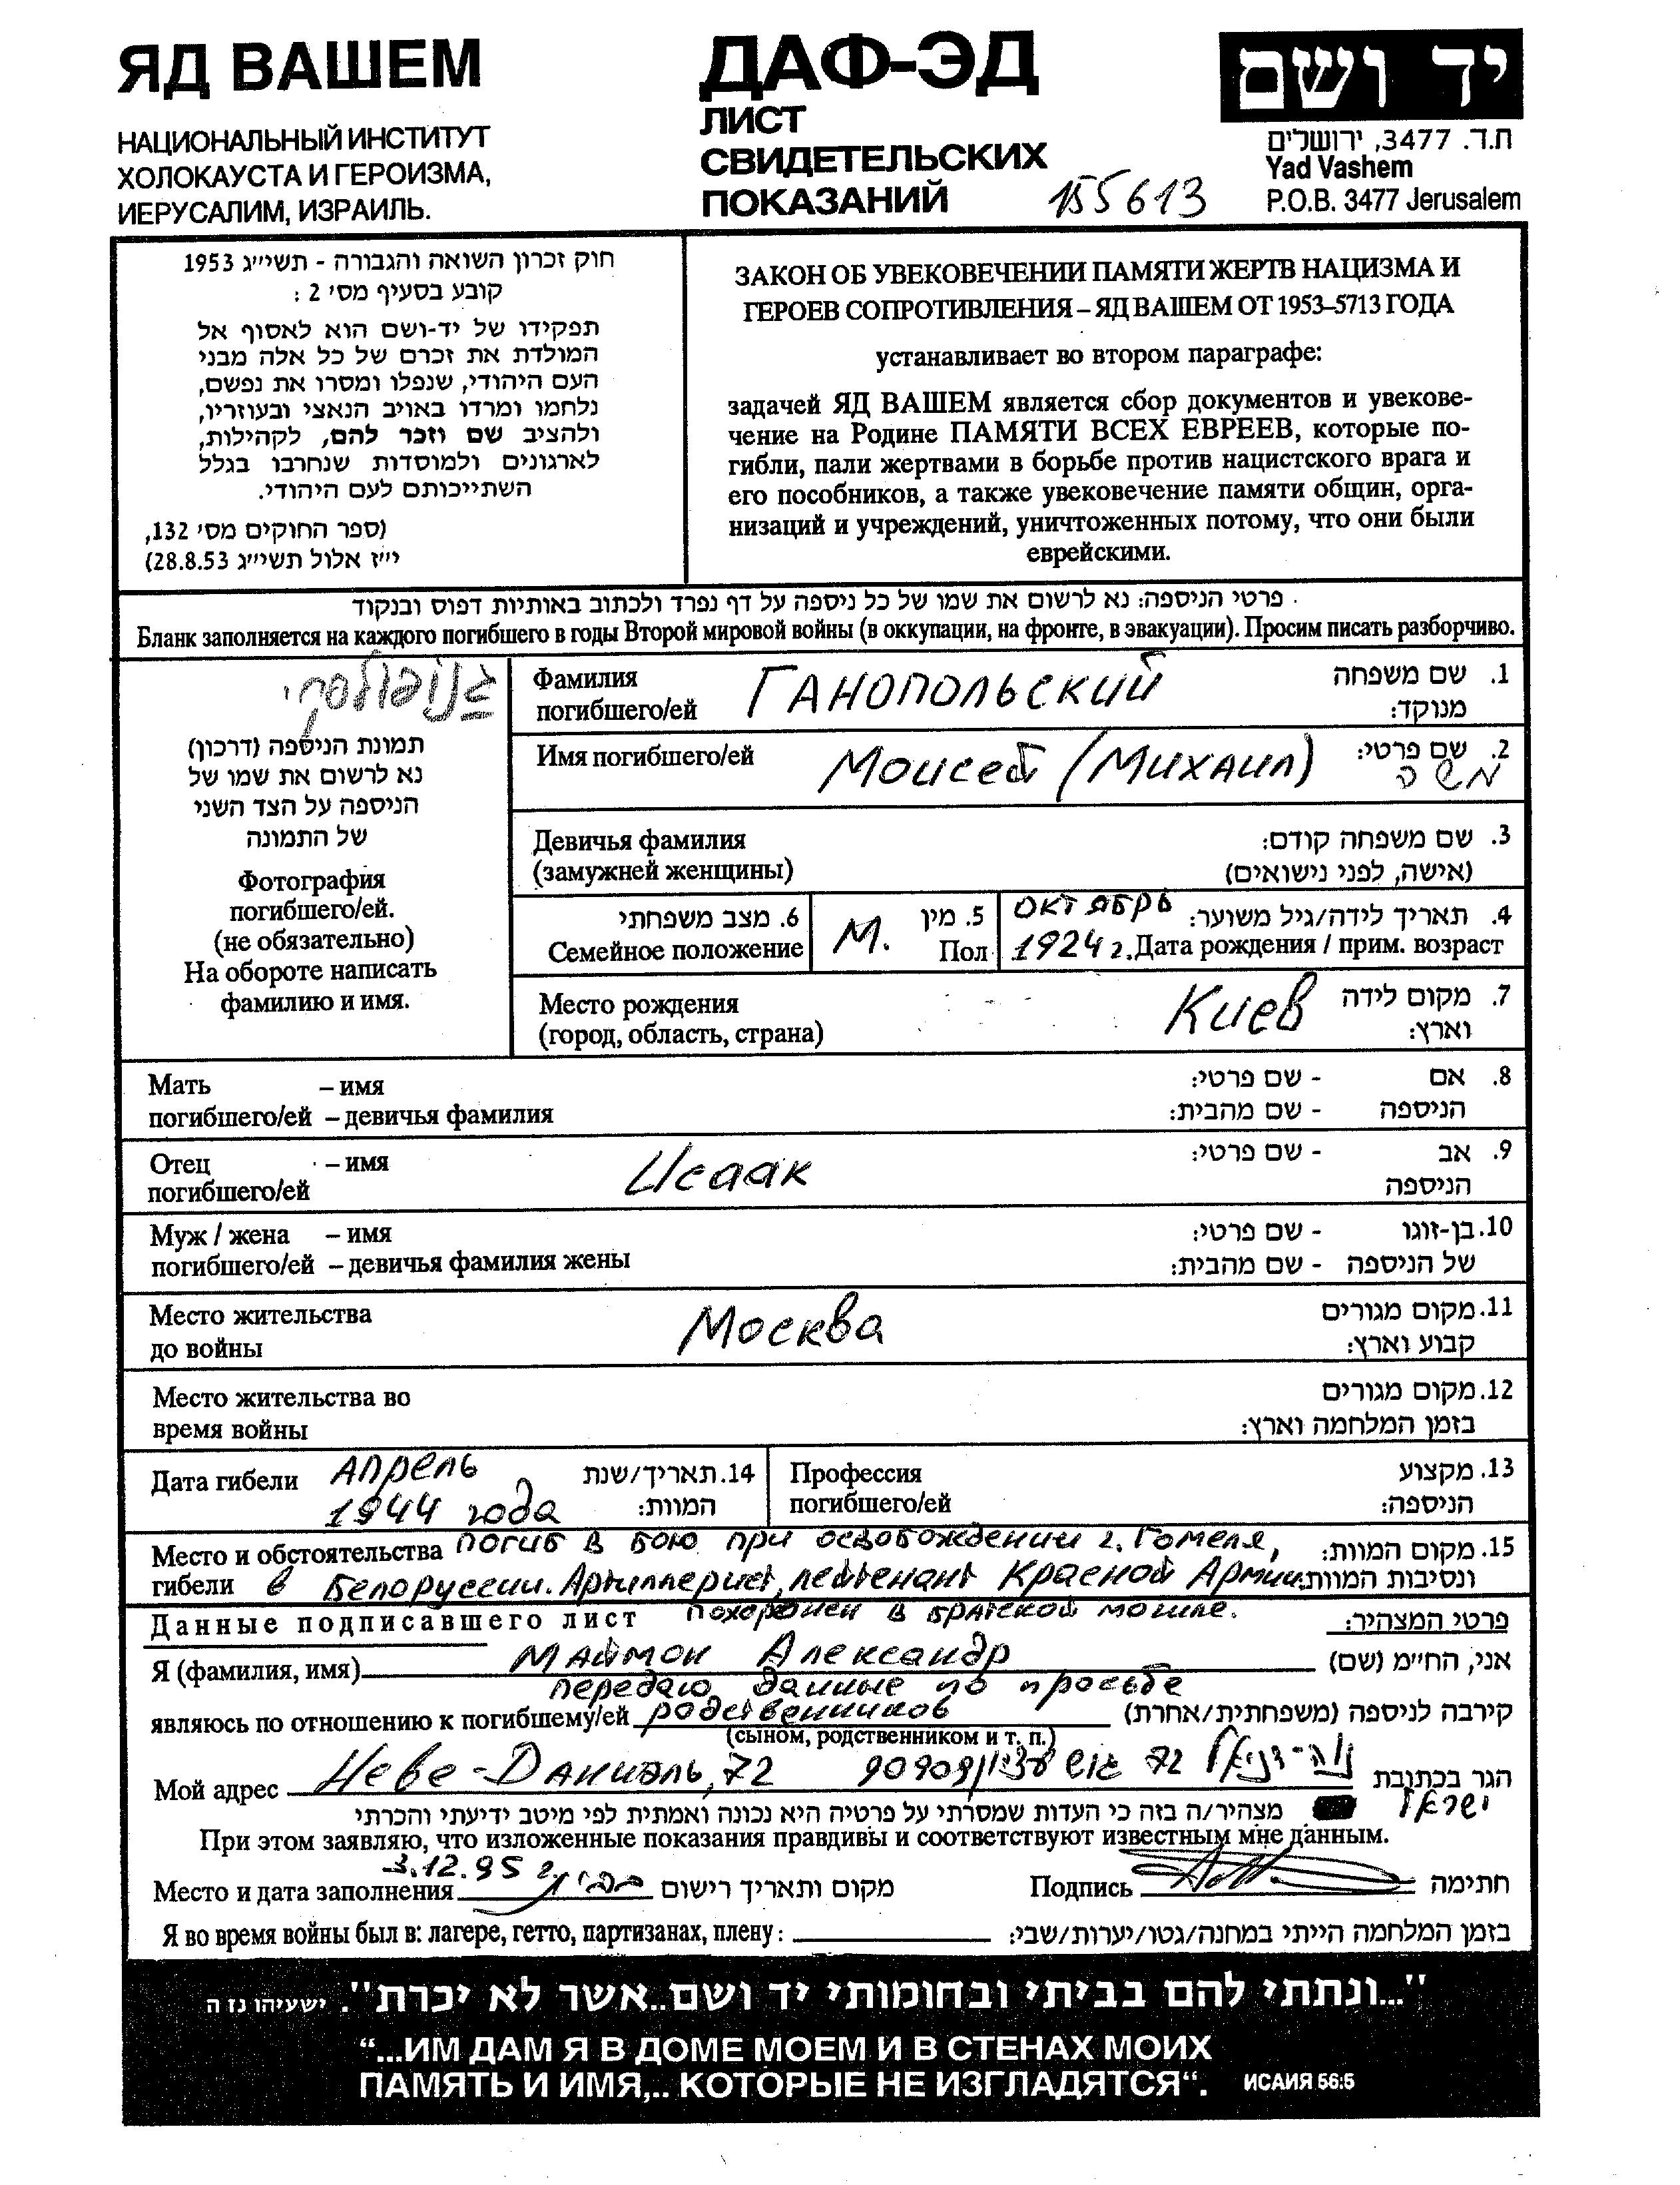 ЯД ВАШЕМ
НАЦИОНАЛЬНЫЙ ИНСТИТУТ
ХОЛОКАУСТА И ГЕРОИЗМА,
ИЕРУСАЛИМ, ИЗРАИЛЬ.
ДАФ-ЭД
ЛИСТ
СВИДЕТЕЛЬСКИХ
ПОКАЗАНИЙ 155613
יד ושם
ת.ד. 3477, ירושלים
Yad Vashem
P.O.B. 3477 Jerusalem
חוק זכרון השואה והגבורה - תשי״ג 1953
קובע בסעיף מס׳ 2 :
תפקידו של יד-ושם הוא לאסוף אל
המולדת את זכרם של כל אלה מבני
העם היהודי, שנפלו ומסרו את נפשם,
נלחמו ומרדו באויב הנאצי ובעוזריו,
ולהציב שם וזכר להם, לקהילות,
לארגונים ולמוסדות שנחרבו בגלל
השתייכותם לעם היהודי.
(ספר החוקים מס׳ 132,
י״ז אלול תשי״ג 28.8.53)
ЗАКОН ОБ УВЕКОВЕЧЕНИИ ПАМЯТИ ЖЕРТВ НАЦИЗМА И
ГЕРОЕВ СОПРОТИВЛЕНИЯ – ЯД ВАШЕМ ОТ 1953–5713 ГОДА
устанавливает во втором параграфе:
задачей ЯД ВАШЕМ является сбор документов и увекове-
чение на Родине ПАМЯТИ ВСЕХ ЕВРЕЕВ, которые по-
гибли, пали жертвами в борьбе против нацистского врага и
его пособников, а также увековечение памяти общин, орга-
низаций и учреждений, уничтоженных потому, что они были
еврейскими.
פרטי הניספה: נא לרשום את שמו של כל ניספה על דף נפרד ולכתוב באותיות דפוס ובנקוד
Бланк заполняется на каждого погибшего в годы Второй мировой войны (в оккупации, на фронте, в эвакуации). Просим писать разборчиво.
גנופולסקי
תמונת הניספה (דרכון)
נא לרשום את שמו של
הניספה על הצד השני
של התמונה
Фотография
погибшего/ей.
(не обязательно)
На обороте написать
фамилию и имя.
Фамилия ГАНОПОЛЬСКИЙ 1. שם משפחה
погибшего/ей מנוקד:
Имя погибшего/ей Моисей (Михаил) 2. שם פרטי:
משה
Девичья фамилия 3. שם משפחה קודם:
(замужней женщины) (אישה, לפני נישואים)
6. מצב משפחתי
Семейное положение
М. 5. מין
Пол
октябрь 4. תאריך לידה/גיל משוער:
1924 г. Дата рождения / прим. возраст
Место рождения Киев 7. מקום לידה
(город, область, страна) וארץ:
Мать – имя 8. אם - שם פרטי:
погибшего/ей – девичья фамилия הניספה - שם מהבית:
Отец – имя Исаак 9. אב - שם פרטי:
погибшего/ей הניספה
Муж / жена – имя 10. בן-זוגו - שם פרטי:
погибшего/ей – девичья фамилия жены של הניספה - שם מהבית:
Место жительства Москва 11. מקום מגורים
до войны קבוע וארץ:
Место жительства во 12. מקום מגורים
время войны בזמן המלחמה וארץ:
Дата гибели Апрель 14. תאריך/שנת
1944 года המוות:
Профессия 13. מקצוע
погибшего/ей הניספה:
Место и обстоятельства погиб в бою при освобождении г. Гомеля, 15. מקום המוות:
гибели в Белоруссии. Артиллерист, лейтенант Красной Армии. ונסיבות המוות:
Данные подписавшего лист похоронен в братской могиле. פרטי המצהיר:
Я (фамилия, имя) Маймон Александр אני, הח״מ (שם)
передаю данные по просьбе
являюсь по отношению к погибшему/ей родственников קירבה לניספה (משפחתית/אחרת)
(сыном, родственником и т. п.)
Мой адрес Неве-Даниэль, 72 נוה-דניאל 72 גוש עציון 90909 הגר בכתובת
ישראל מצהיר/ה בזה כי העדות שמסרתי על פרטיה היא נכונה ואמתית לפי מיטב ידיעתי והכרתי
При этом заявляю, что изложенные показания правдивы и соответствуют известным мне данным.
3.12.95 г.
Место и дата заполнения מקום ותאריך רישום Подпись חתימה
Я во время войны был в: лагере, гетто, партизанах, плену: בזמן המלחמה הייתי במחנה/גטו/יערות/שבי:
"...ונתתי להם בביתי ובחומותי יד ושם..אשר לא יכרת". ישעיהו נז ה
“...ИМ ДАМ Я В ДОМЕ МОЕМ И В СТЕНАХ МОИХ
ПАМЯТЬ И ИМЯ,.. КОТОРЫЕ НЕ ИЗГЛАДЯТСЯ“. ИСАИЯ 56:5